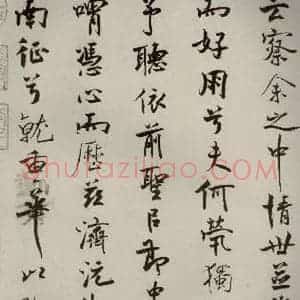 云察余之中情世並
而好朋兮夫何煢獨
予聽依前聖以節中
喟憑心而歷茲濟沅
南征兮就重華以
Shufaziliao.com